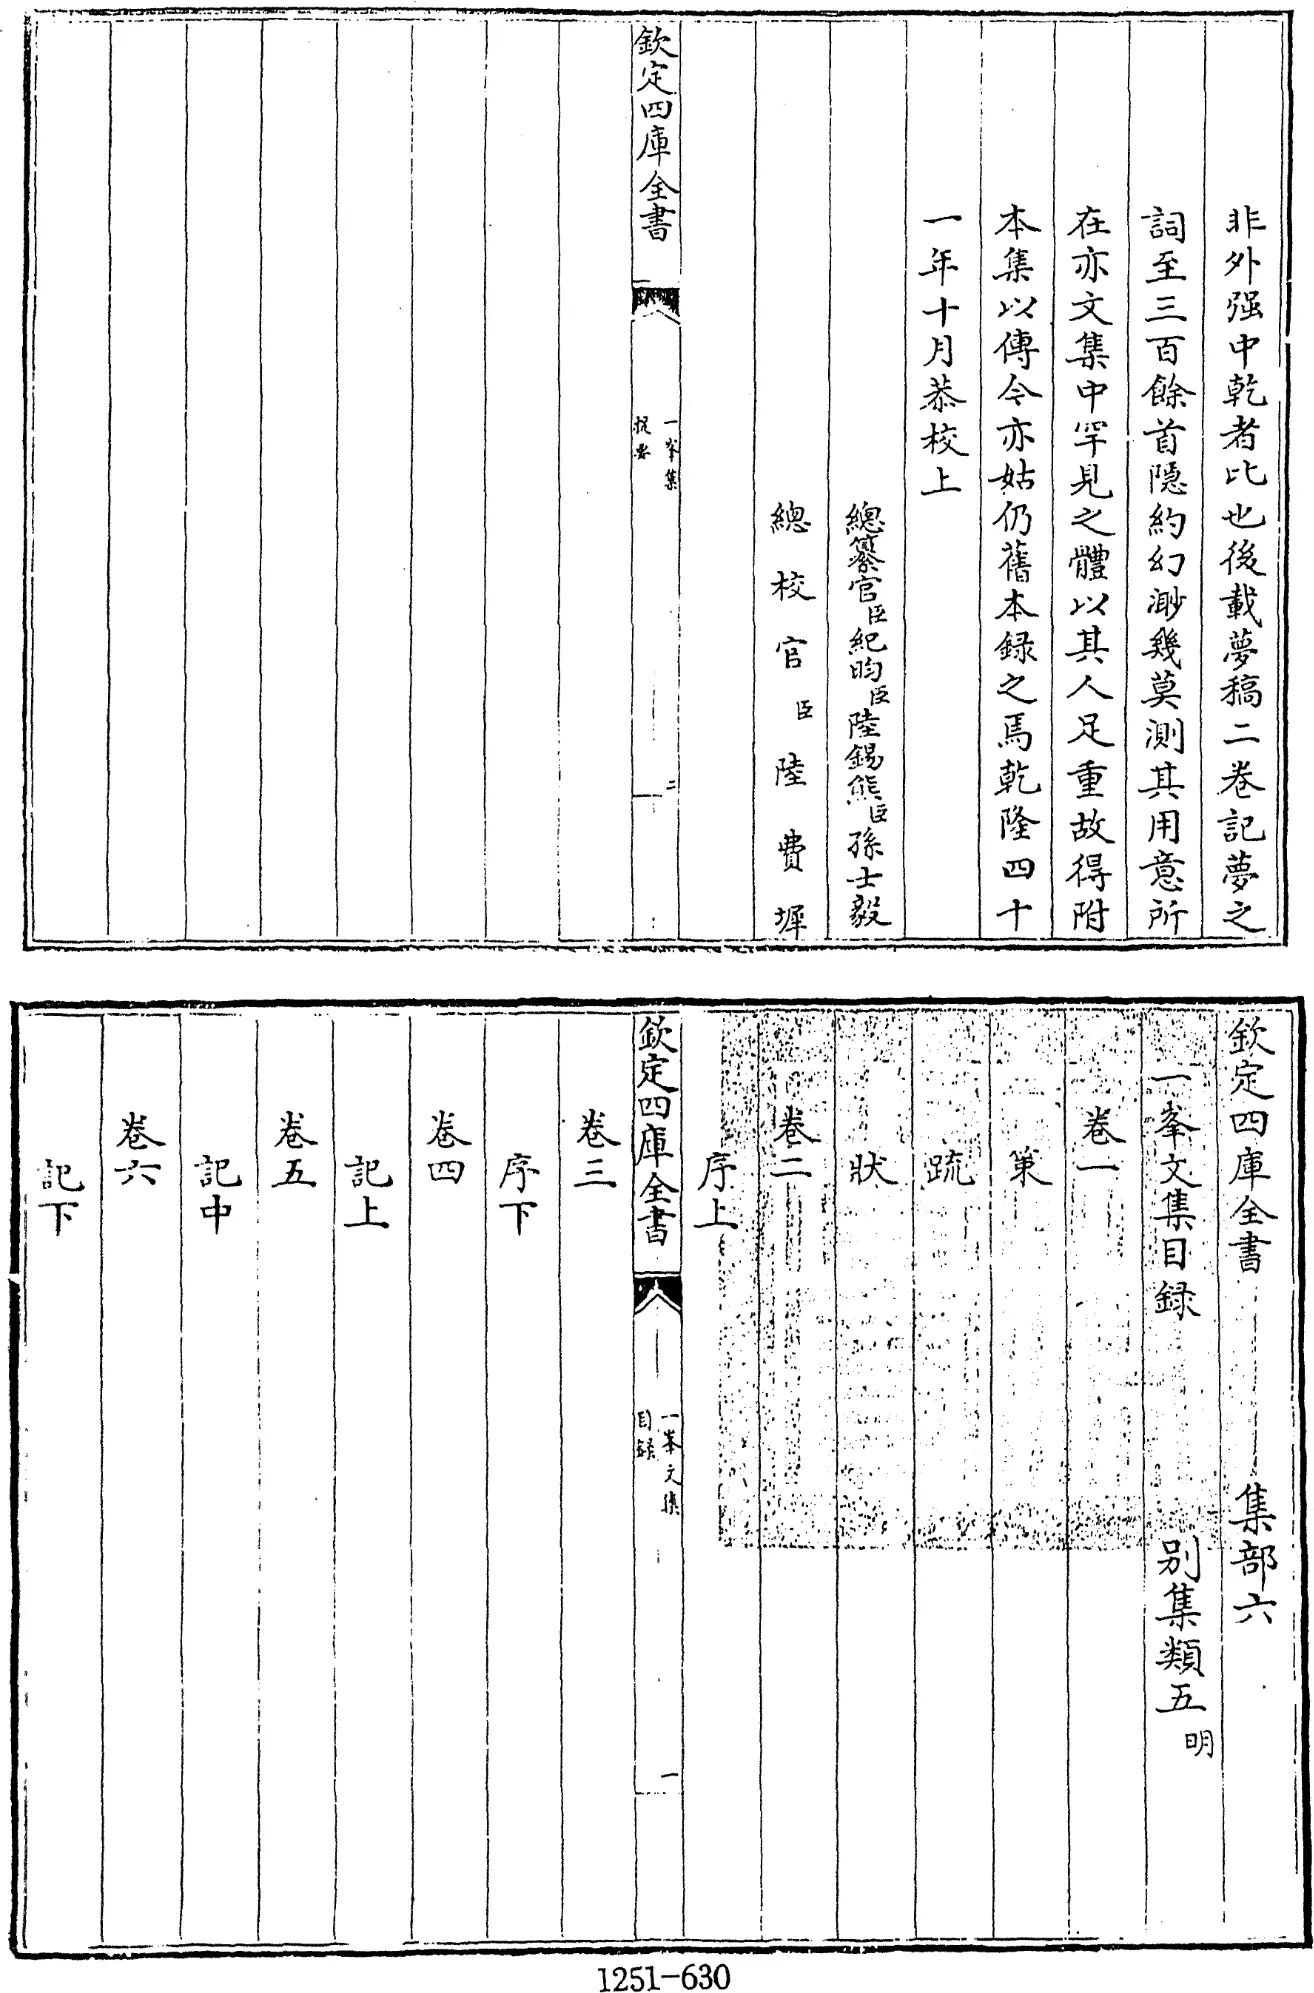 非外强中乾者比也後載夢稿二卷記夢之
詞至三百餘首隱約幻渺幾莫測其用意所
在亦文集中罕見之體以其人足重故得附
本集以傳今亦姑仍舊本録之焉乾隆四十
一年十月恭校上
總纂官臣紀昀臣陸錫熊臣孫士毅
總校官臣陸費墀
欽定四庫全書
一峯集
提要
二
欽定四庫全書
集部六
一峯文集目録
别集類五明
卷一
策
疏
狀
卷二
序上
欽定四庫全書
一峯文集
目録
一
卷三
序下
卷四
記上
卷五
記中
卷六
記下
1251-630